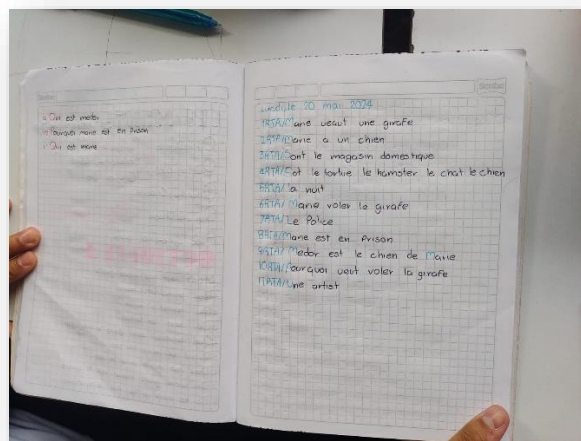 Scribe
Qui est medor
Pourquoi marie est en Prison
Qui est marie
Scribe
Lundi, le 20 mai 2024
1RTA/Marie veaut une girafe
2RTA/Marie a un chien
3RTA/Sont le magasin domestique
4RTA/Sot le tortue le hamster le chat le chien
5RTA/la nuit
6RTA/Marie voler le girafe
7RTA/Le Police
8RTA/Marie est en Prison
9RTA/Medor est le chien de Marie
10RTA/Pourquoi veut voler la girafe
11RTA/Une artist